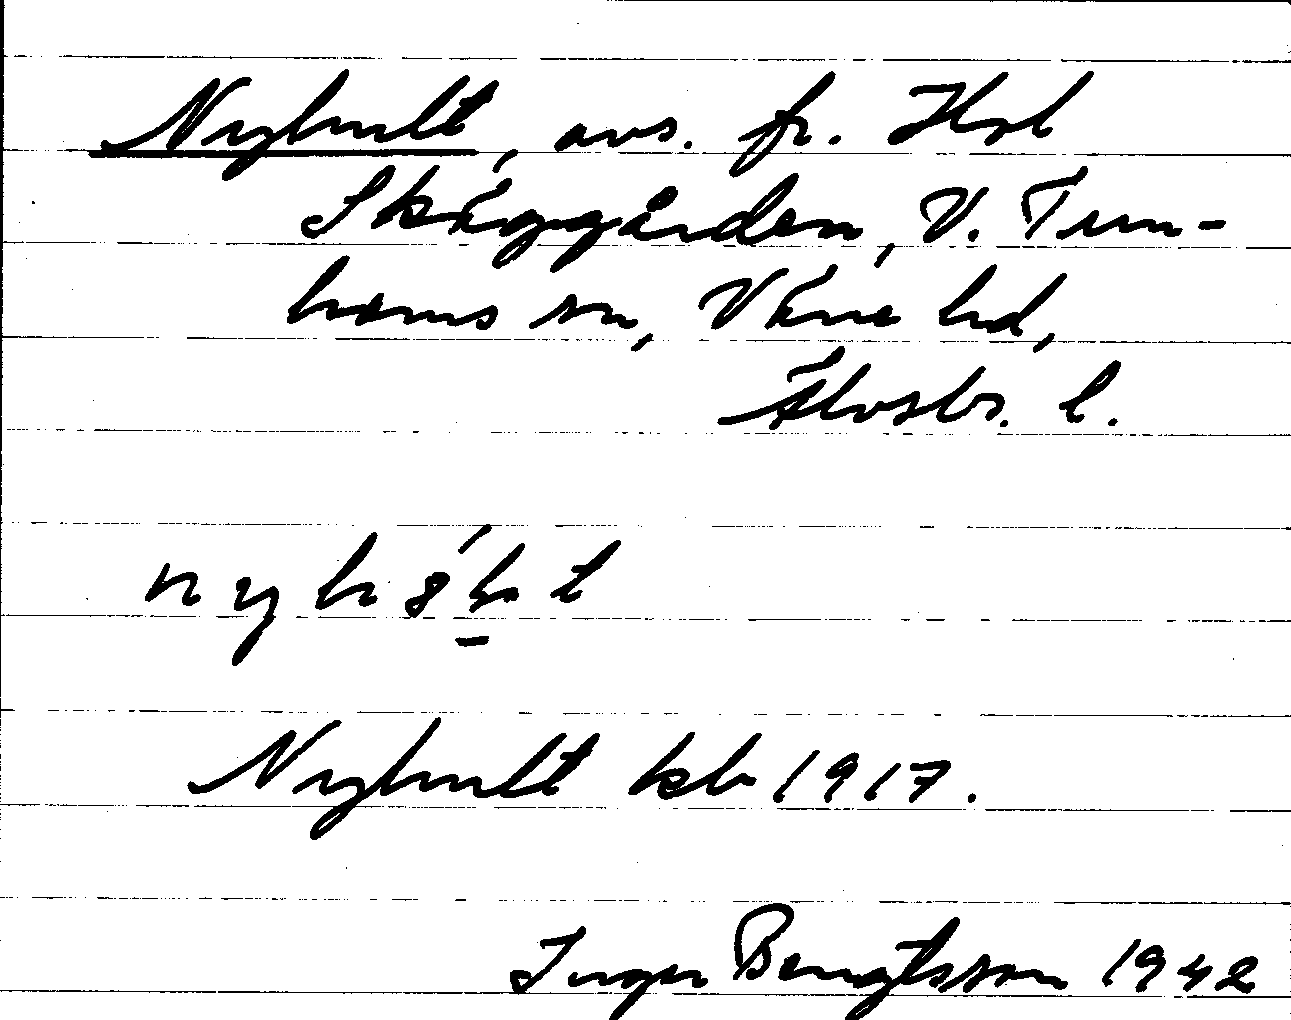 Nyhult, avs. fr. Hol
Skäggården, V. Tun-
hems sn, Väne hd,
Älvsbr. l.
Nyhult kb 1917.
Inger Bengtsson 1942